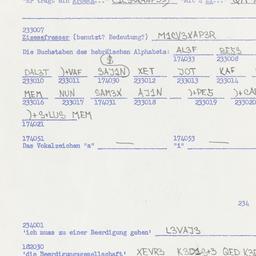 233007
Eisenfresser (benutzt? Bedeutung?) M1CV3XAP3R
Die Buchstaben des hebräischen Alphabets: AL3F BE53
174033 233008
($)
DAL3T )+VAF SAJ1N) XET JOT KAF
233010 233011 174030 233012 233013 233014
MEM NUN SAM3X AJ1N )+PE5 )+CA
233016 233017 174031 233018 233019 23302
)+S+LUS MEM
174021
174051 174053
Das Vokalzeichen "a" "i"
234
234001
'ich muss zu einer Beerdigung gehen' L3VAJ3
182030
'die Beerdigungsgesellschaft' XEVR3